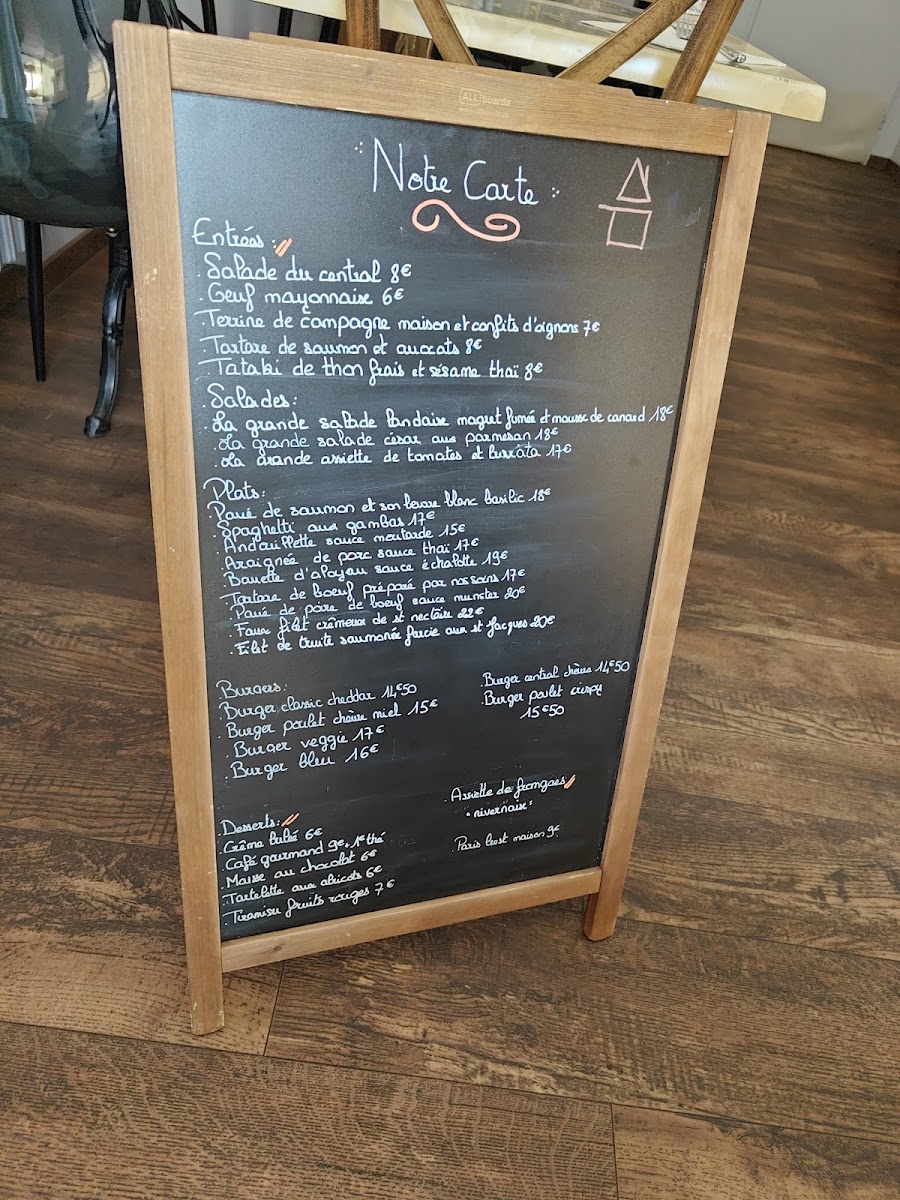 ALL boards
Notre Carte
Entrées :
. Salade du central 8€
. Oeuf mayonnaise 6€
. Terrine de campagne maison et confits d'oignons 7€
. Tartare de saumon et avocats 8€
. Tataki de thon frais et sésame thaï 8€
. Salades :
. La grande salade landaise magret fumé et mousse de canard 18€
. La grande salade césar aux parmesan 18€
. La grande assiette de tomates et burrata 17€
Plats :
. Pavé de saumon et son beurre blanc basilic 18€
. Spaghetti aux gambas 17€
. Andouillette sauce moutarde 15€
. Araignée de porc sauce thaï 17€
. Bavette d'aloyau sauce échalotte 19€
. Tartare de boeuf préparé par nos soins 17€
. Pavé de poire de boeuf sauce munster 20€
. Faux filet crémeux de st nectaire 22€
. Filet de truite saumonée farcie aux st Jacques 20€
Burgers :
. Burger classic cheddar 14€50
. Burger poulet chèvre miel 15€
. Burger veggie 17€
. Burger bleu 16€
. Burger central chèvre 14€50
. Burger poulet crispy
15€50
. Desserts :
. Crème brûlé 6€
. Café gourmand 9€ + 1€ thé
. Mousse au chocolat 6€
. Tartelette aux abricots 6€
. Tiramisu fruits rouges 7€
. Assiette de fromages
"nivernaise"
. Paris brest maison 9€